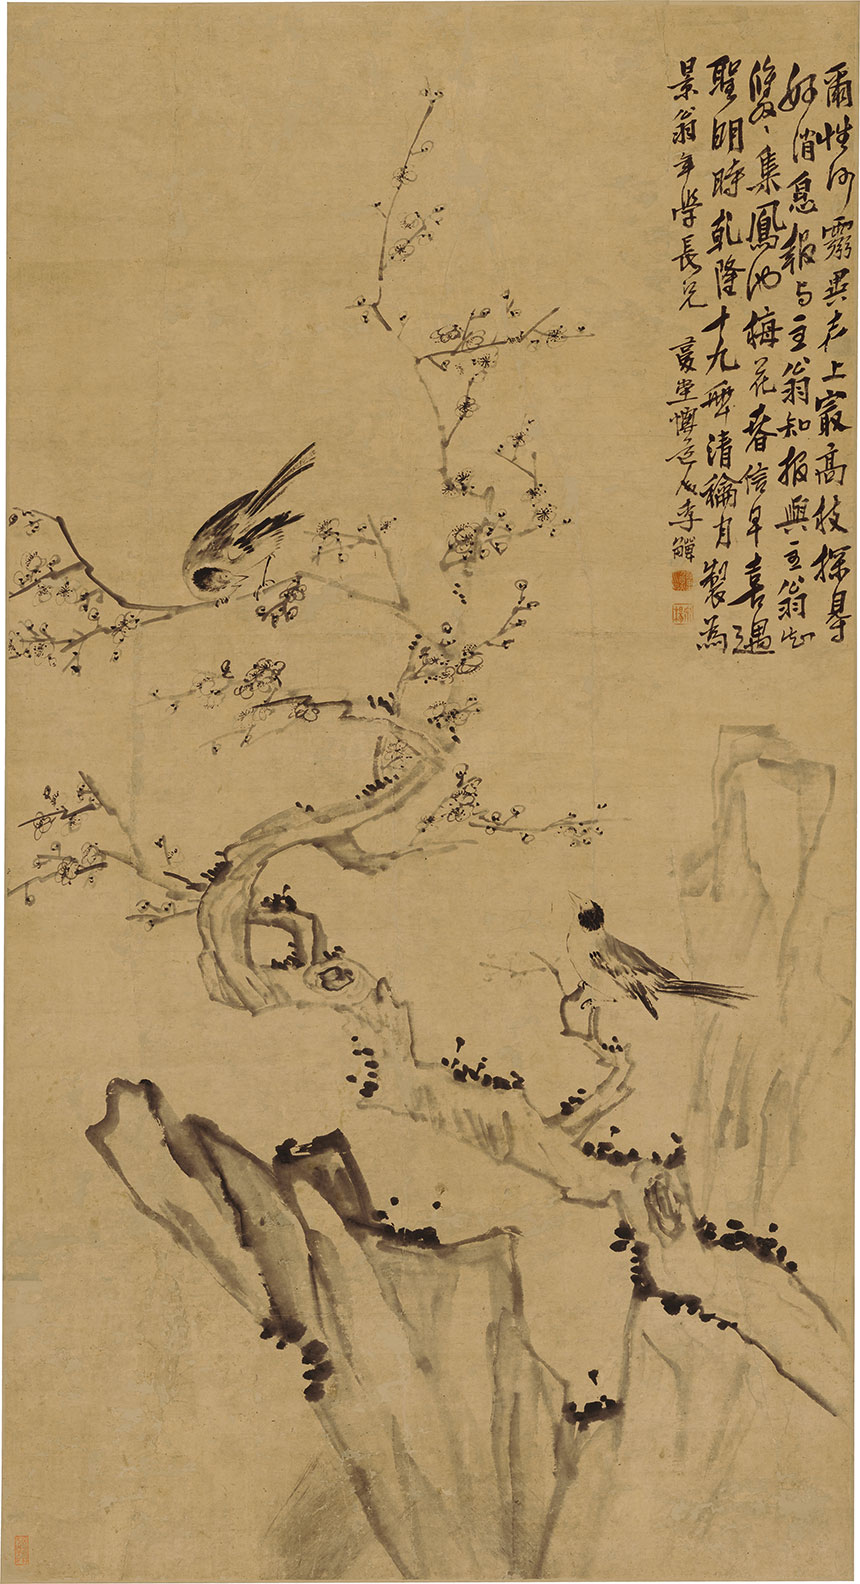 爾性何靈異衣上最高枝探尋
好消息報與主翁知報與主翁知
雙雙集鳳池梅花春信早喜遇
聖明時乾隆十九年清龢月製為
景翁年學長兄 復堂懊道人李鱓